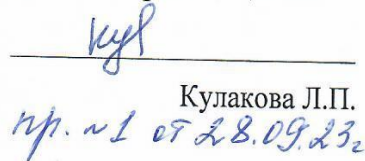 Кулакова Л.П.
пр. №1 от 28.09.23г